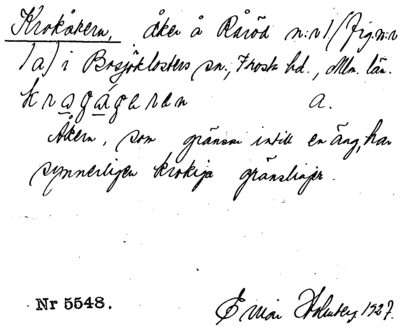 Krokåkern, åker å Råröd n:r 1 (fig. n:r
1a) i Bosjöklosters sn., Frosta hd., Mlm. län.
krɔgágəran a.
Åkern, som gränsar intill en äng, har
synnerligen krokiga gränslinjer.
Nr 5548. Einar Holmberg 1927.